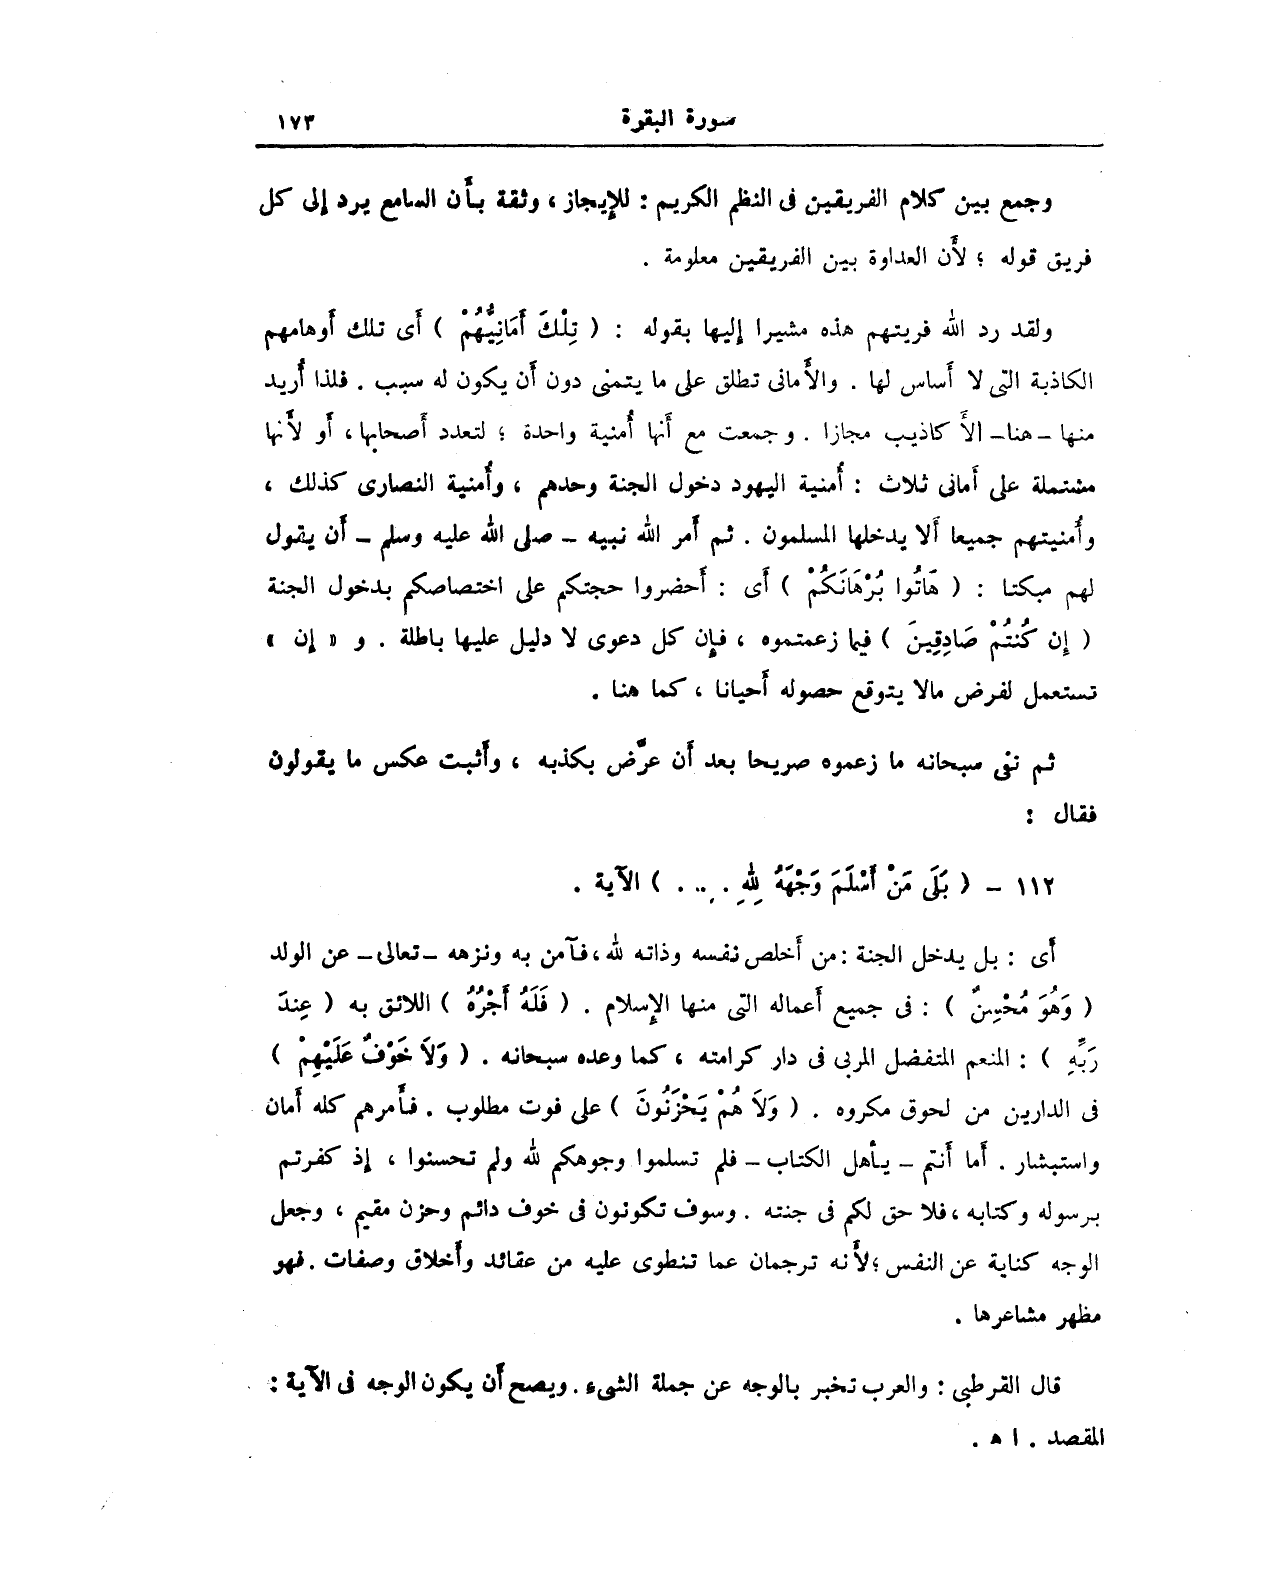 سورة البقرة ١٧٣
وجمع بين كلام الفريقين فى النظم الكريم : للإيجاز ، وثقة بأن السامع يرد إلى كل
فريق قوله ؛ لأن العداوة بين الفريقين معلومة .
ولقد رد الله فريتهم هذه مشيرا إليها بقوله : ( تِلْكَ أَمَانِيُّهُمْ ) أى تلك أوهامهم
الكاذبة التى لا أساس لها . والأمانى تطلق على ما يتمنى دون أن يكون له سبب . فلذا أُريد
منها – هنا – الأكاذيب مجازا . وجمعت مع أنها أُمنية واحدة ؛ لتعدد أصحابها ، أو لأنها
مشتملة على أمانى ثلاث : أُمنية اليهود دخول الجنة وحدهم ، وأُمنية النصارى كذلك ،
وأُمنيتهم جميعا ألا يدخلها المسلمون . ثم أمر الله نبيه – صلى الله عليه وسلم – أن يقول
لهم مبكتا : ( هَاتُوا بُرْهَانَكُمْ ) أى : أحضروا حجتكم على اختصاصكم بدخول الجنة
( إِن كُنتُمْ صَادِقِينَ ) فيما زعمتموه ، فإن كل دعوى لا دليل عليها باطلة . و « إن »
تستعمل لفرض مالا يتوقع حصوله أحيانا ، كما هنا .
ثم نفى سبحانه ما زعموه صريحا بعد أن عرَّض بكذبه ، وأثبت عكس ما يقولون
فقال :
١١٢ – ( بَلَى مَنْ أَسْلَمَ وَجْهَهُ لِلهِ . . . . ) الآية .
أى : بل يدخل الجنة : من أخلص نفسه وذاته لله ، فآمن به ونزهه – تعالى – عن الولد
( وَهُوَ مُحْسِنٌ ) : فى جميع أعماله التى منها الإسلام . ( فَلَهُ أَجْرُهُ ) اللائق به ( عِندَ
رَبِّهِ ) : المنعم المتفضل المربى فى دار كرامته ، كما وعده سبحانه . ( وَلَا خَوْفٌ عَلَيْهِمْ )
فى الدارين من لحوق مكروه . ( وَلَا هُمْ يَحْزَنُونَ ) على فوت مطلوب . فأمرهم كله أمان
واستبشار . أما أنتم – يأهل الكتاب – فلم تسلموا وجوهكم لله ولم تحسنوا ، إذ كفرتم
برسوله وكتابه ، فلا حق لكم فى جنته . وسوف تكونون فى خوف دائم وحزن مقيم ، وجعل
الوجه كناية عن النفس ؛ لأنه ترجمان عما تنطوى عليه من عقائد وأخلاق وصفات . فهو
مظهر مشاعرها .
قال القرطبى : والعرب تخبر بالوجه عن جملة الشىء . ويصح أن يكون الوجه فى الآية :
المقصد . ا ه .